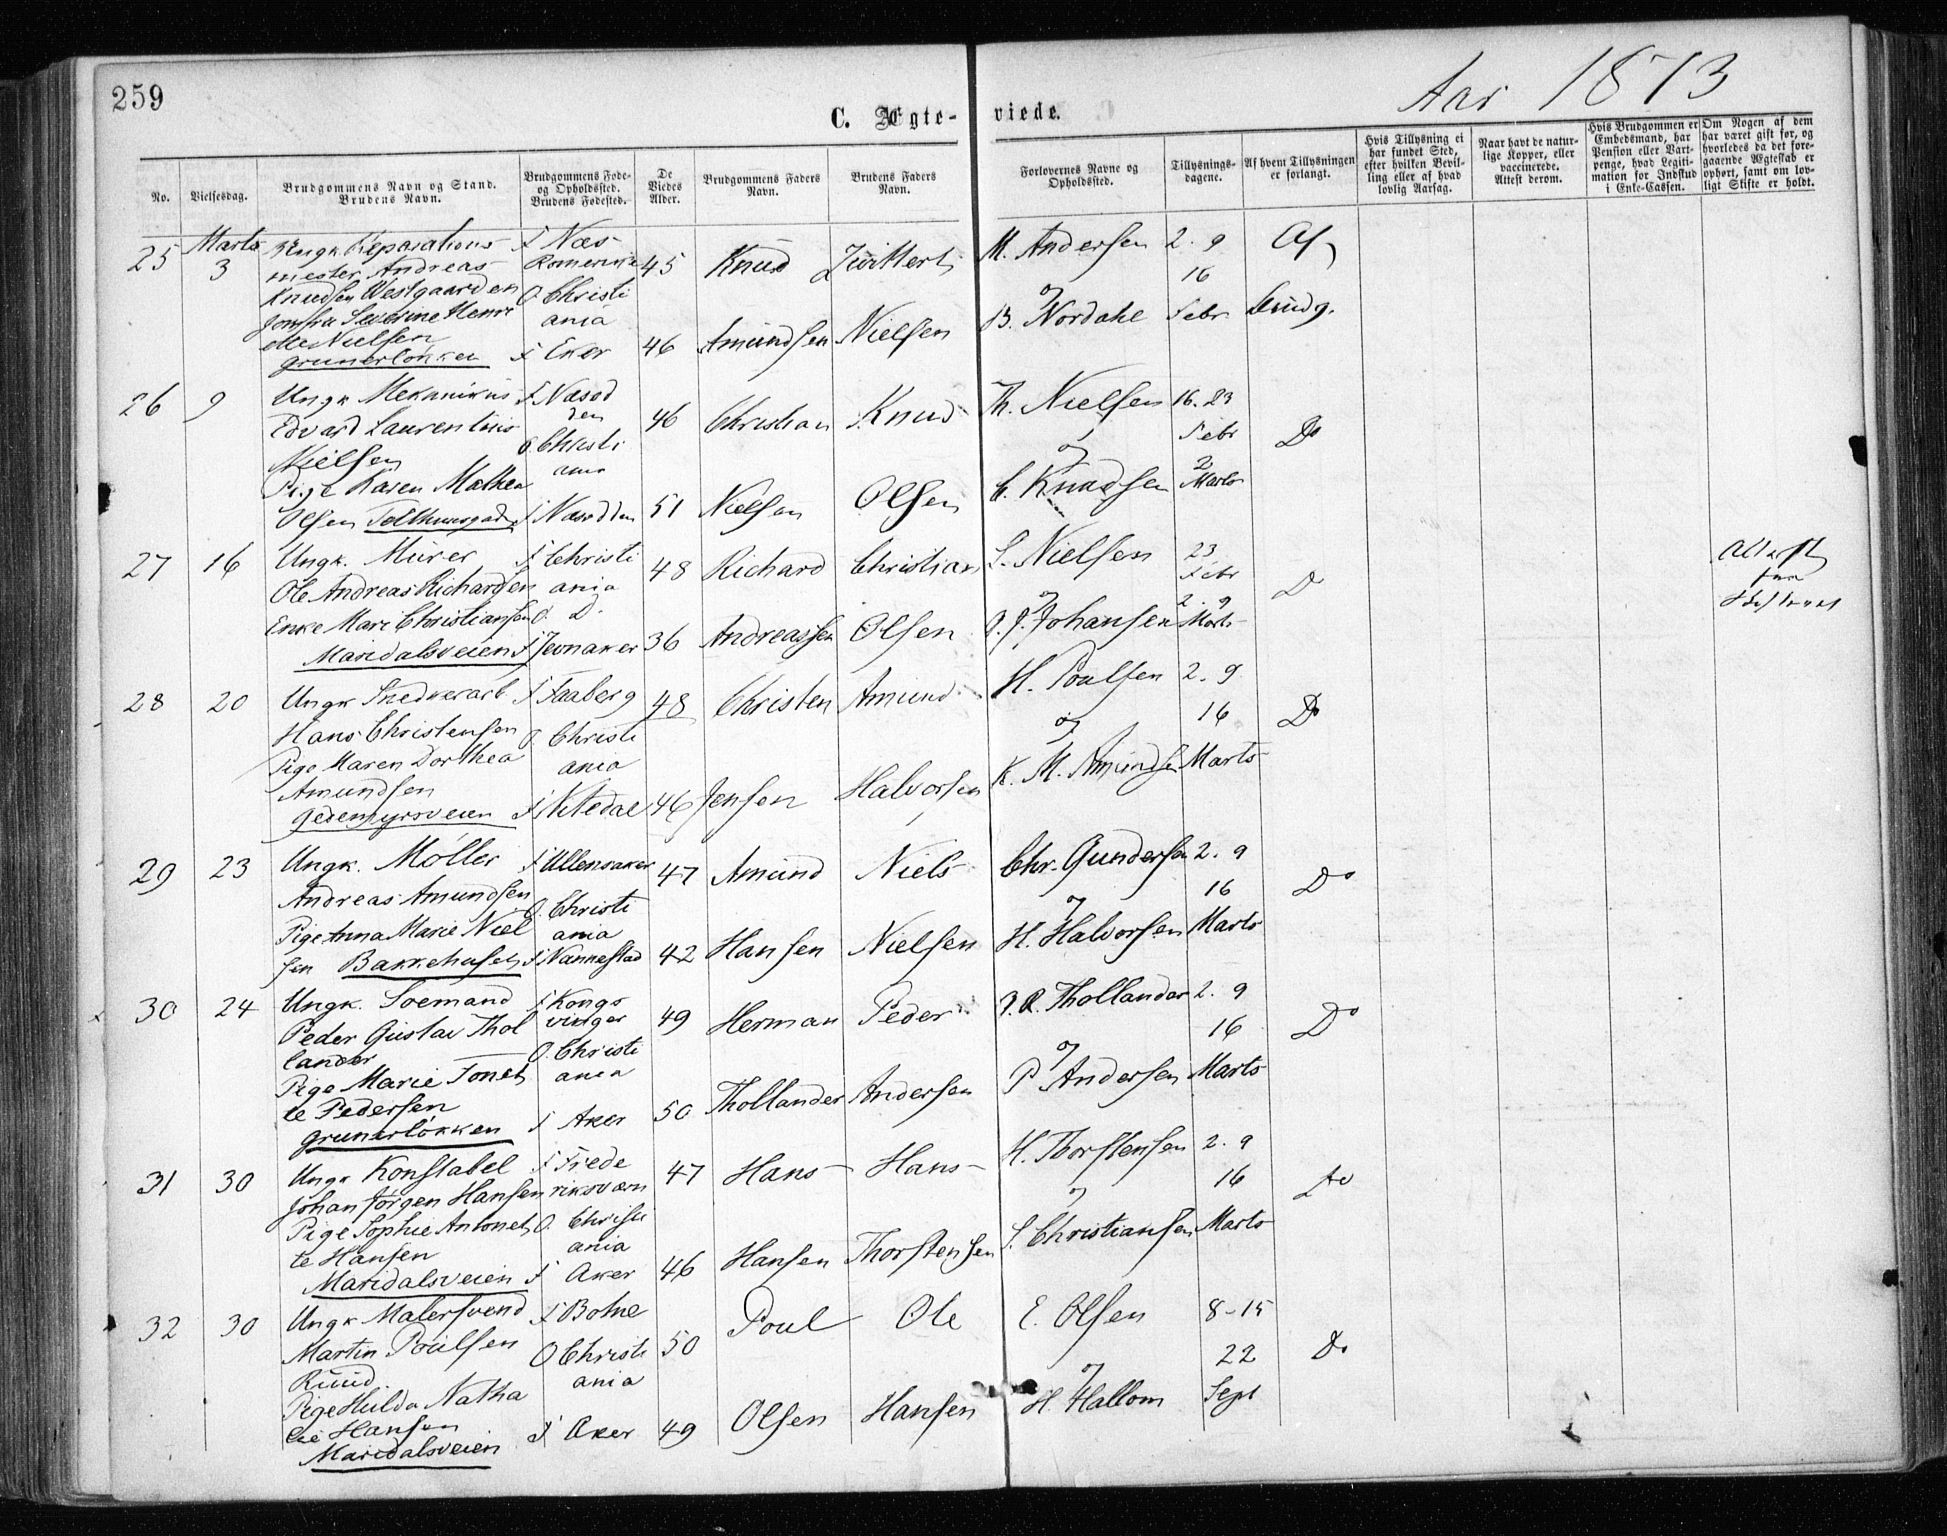 259
Aar 1873
C. Ægte-
viede.
No.
Vielsesdag.
Brudgommens Navn og Stand.
Brudens Navn.
Brudgommens Føde-
og Opholdssted.
Brudens Fødested.
De
Viedes
Alder.
Brudgommens Faders
Navn.
Brudens Faders
Navn.
Forlovernes Navne og
Opholdssted.
Tillysnings-
dagene.
Af hvem Tillysningen
er forlangt.
Hvis Tillysning ei
har fundet Sted,
efter hvilken Bevil-
ling eller af hvad
lovlig Aarsag.
Naar havt de natur-
lige Kopper, eller
vaccinerede.
Attest derom.
Hvis Brudgommen er
Embedsmand, har
Pension eller Vart-
penge, hvad Legiti-
mation for Indskud
i Enke-Cassen.
Om Nogen af dem
har været gift før, og
hvorledes da det fore-
gaaende Ægteskab er
ophørt, samt om lov-
ligt Skifte er holdt.
25 Marts 3
Ungk Reparations
mester Andreas
Knudsen Westgaarden
Jomfru Severine Henri
ette Nielsen
Grunerløkken
F Næs
Romerike
O. Christi
ania
F Eker
45
46
Knud
Amundsen
Nielsen
M. Andersen
og
B. Nordahl
2. 9
16
Febr
Af
Brudg.
26 9
Ungk Mekanikus
Edvard Laurentius
Nielsen
Pige Karen Mathea
Olsen
F Næsod
den
O. Christi
ania
F Næsodden
46
51
Christian
Nielsen
Knud
Olsen
Th. Nielsen
og
C. Knudsen
16. 23
Febr
2
Marts
Do
27 16
Ungk. Murer
Ole Andreas Richardsen
Enke Mari Christiansen
Maridalsveien
F Christi
ania
O. D.
F Jevnaker
48
36
Richard
Andreassen
Christian
Olsen
L. Nielsen
og
Johansen
23
Febr
2. 9
Marts
D
28 20
Ungk Snedkerarb
Hans Christensen
Pige Maren Dorthea
Amundsen
Gedemyrsveien
F Faaberg
O. Christi
ania
F
48
46
Christen
Jensen
Amund
Halvorsen
H. Poulsen
og
K. M. Amundsen
2. 9
16
Marts
Do
29 23
Ungk. Møller
Andreas Amundsen
Pige Anna Marie Niel
sen Bakkehusen
F Ullensaker
O. Christi
ania
F Nannestad
47
42
Amund
Hansen
Niels
Nielsen
Chr. Gundersen
og
H. Halvorsen
2. 9
16
Marts
Do
30 24
Ungk. Soemand
Peder Gustav Thol
lander
Pige Marie Tonet
te Pedersen
Grunerløkken
F Kongs
vinger
O. Christi
ania
F Aker
49
50
Herman
Thollander
Peder
Andersen
Thollander
og
P Andersen
2. 9
16
Marts
Do
31 30
Ungk Konstabel
Johan Jørgen Hansen
Pige Sophie Antonet
te Hansen
Maridalsveien
F Frede
riksværn
O. Christi
ania
F Aker
47
46
Hans
Hansen
Hans
Thorstensen
H. Thorstensen
og
S. Christiansen
2. 9
16
Marts
Do
32 30
Ungk Malersvend
Martin Poulsen
Ruud
Pige Hulda Natha
lie Hansen
Maridalsveien
F Botne
O Christi
ania
F Aker
50
49
Poul
Olsen
Ole
Hansen
E. Olsen
og
H. Hallom
8-15
22
Sept
Do